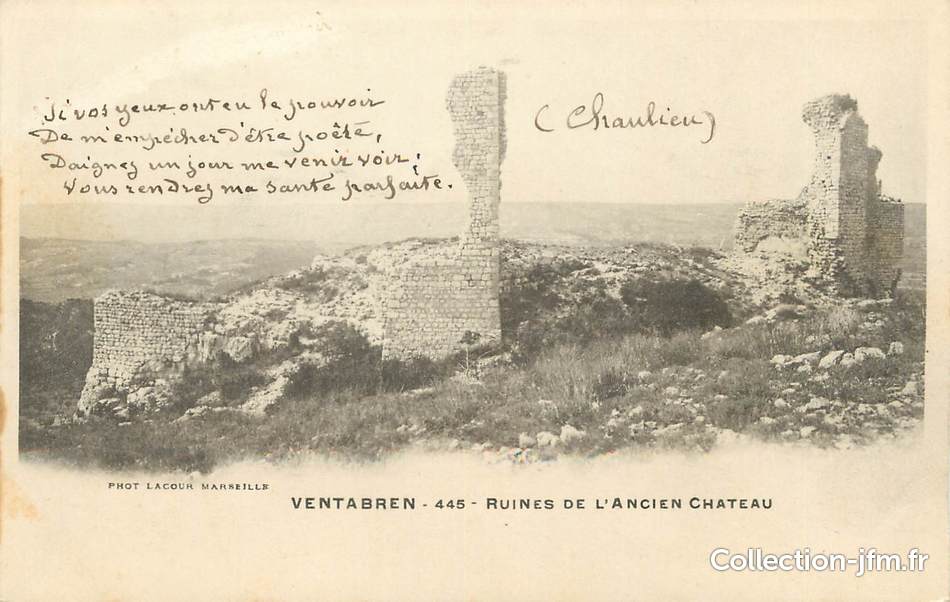 Si vos yeux ont eu le pouvoir
De m'empécher d'être poête,
Daignez un jour me venir voir;
Vous rendrez ma santé parfaite.
(Chaulieu)
PHOT LACOUR MARSEILLE
VENTABREN - 445 - RUINES DE L'ANCIEN CHATEAU
Collection-jfm.fr